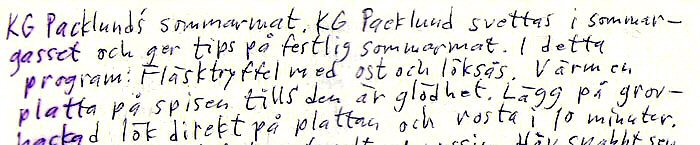 KG Packlund's sommarmat. KG Packlund svettas i sommar-
gasset och ger tips på festlig sommarmat. I detta
program: Fläsktryffel med ost och löksås. Värm en
platta på spisen tills den är glödhet. Lägg på grov-
hackad lök direkt på plattan och rosta i 10 minuter.